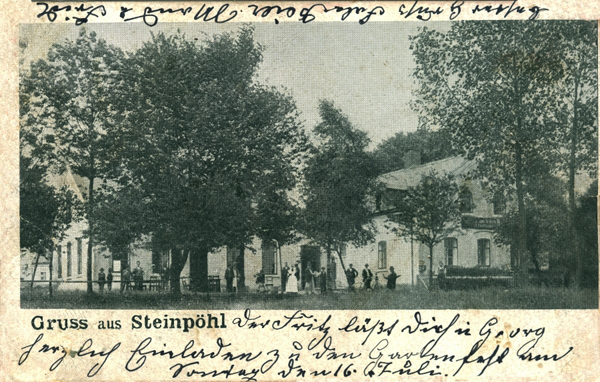 Bester Gruß
Gruss aus Steinpöhl Der Fritz läßt Dich u Georg
herzlich Einladen zu den Gartenfest am
Sontag den 16. Juli.